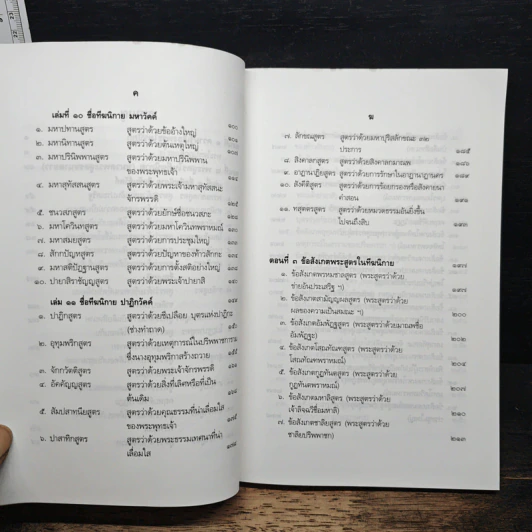 ค
เล่มที่ ๑๐ ชื่อทีฆนิกาย มหาวัคค์ ๑๐๐
๑. มหาปทานสูตร สูตรว่าด้วยข้ออ้างใหญ่ ๑๐๐
๒. มหานิทานสูตร สูตรว่าด้วยต้นเหตุใหญ่
๓. มหาปรินิพพานสูตร สูตรว่าด้วยมหาปรินิพพาน
ของพระพุทธเจ้า ๑๑๔
๔. มหาสุทัสสนสูตร สูตรว่าด้วยพระเจ้ามหาสุทัสสนะ
จักรพรรดิ ๑๒๕
๕. ชนวสภสูตร สูตรว่าด้วยยักษ์ชื่อชนวสภะ
๖. มหาโควินทสูตร สูตรว่าด้วยมหาโควินทพราหมณ์
๗. มหาสมยสูตร สูตรว่าด้วยการประชุมใหญ่
๘. สักกปัญหสูตร สูตรว่าด้วยปัญหาของท้าวสักกะ
๙. มหาสติปัฏฐานสูตร สูตรว่าด้วยการตั้งสติอย่างใหญ่
๑๐. ปายาสิราชัญญสูตร สูตรว่าด้วยพระเจ้าปายาสิ
เล่ม ๑๑ ชื่อทีฆนิกาย ปาฏิกวัคค์
๑. ปาฏิกสูตร สูตรว่าด้วยชีเปลือย บุตรแห่งปาฏิกะ
(ช่างทำถาด)
๒. อุทุมพริกสูตร สูตรว่าด้วยเหตุการณ์ในปริพพาชการาม
ซึ่งนางอุทุมพริกาสร้างถวาย
๓. จักกวัตติสูตร สูตรว่าด้วยพระเจ้าจักรพรรดิ
๔. อัคคัญญสูตร สูตรว่าด้วยสิ่งที่เลิศหรือที่เป็น
ต้นเดิม
๕. สัมปสาทนียสูตร สูตรว่าด้วยคุณธรรมที่น่าเลื่อมใส
ของพระพุทธเจ้า
๖. ปาสาทิกสูตร สูตรว่าด้วยพระธรรมเทศนาที่น่า
เลื่อมใส
ฆ
๗. ลักขณสูตร สูตรว่าด้วยมหาบุริสลักขณะ ๓๒
ประการ ๑๘๕
๘. สิงคาลกสูตร สูตรว่าด้วยสิงคาลกมาณพ
๙. อาฏานาฏิยสูตร สูตรว่าด้วยการรักษาในอาฏานาฏานคร ๑๙๑
๑๐. สังคีติสูตร สูตรว่าด้วยการร้อยกรองหรือสังคายนา
คำสอน ๑๙๓
๑๑. ทสุตตรสูตร สูตรว่าด้วยหมวดธรรมอันยิ่งขึ้น
ไปจนถึงสิบ
ตอนที่ ๓ ข้อสังเกตพระสูตรในทีฆนิกาย ๑๙๗
๑. ข้อสังเกตพรหมชาลสูตร (พระสูตรว่าด้วย
ข่ายอันประเสริฐ ฯ) ๑๙๗
๒. ข้อสังเกตสามัญญผลสูตร (พระสูตรว่าด้วย
ผลของความเป็นสมณะ ฯ) ๒๐๐
๓. ข้อสังเกตอัมพัฏฐสูตร (พระสูตรว่าด้วยมาณพชื่อ
อัมพัฏฐะ) ๒๐๒
๔. ข้อสังเกตโสณทัณฑสูตร (พระสูตรว่าด้วย
โสณทัณฑพราหมณ์) ๒๐๔
๕. ข้อสังเกตกูฏทันตสูตร (พระสูตรว่าด้วย
กูฏทันตพราหมณ์) ๒๐๗
๖. ข้อสังเกตมหาลิสูตร (พระสูตรว่าด้วย
เจ้าลิจฉวีชื่อมหาลิ) ๒๑๐
๗. ข้อสังเกตชาลิยสูตร (พระสูตรว่าด้วย
ชาลิยปริพพาชก) ๒๑๓